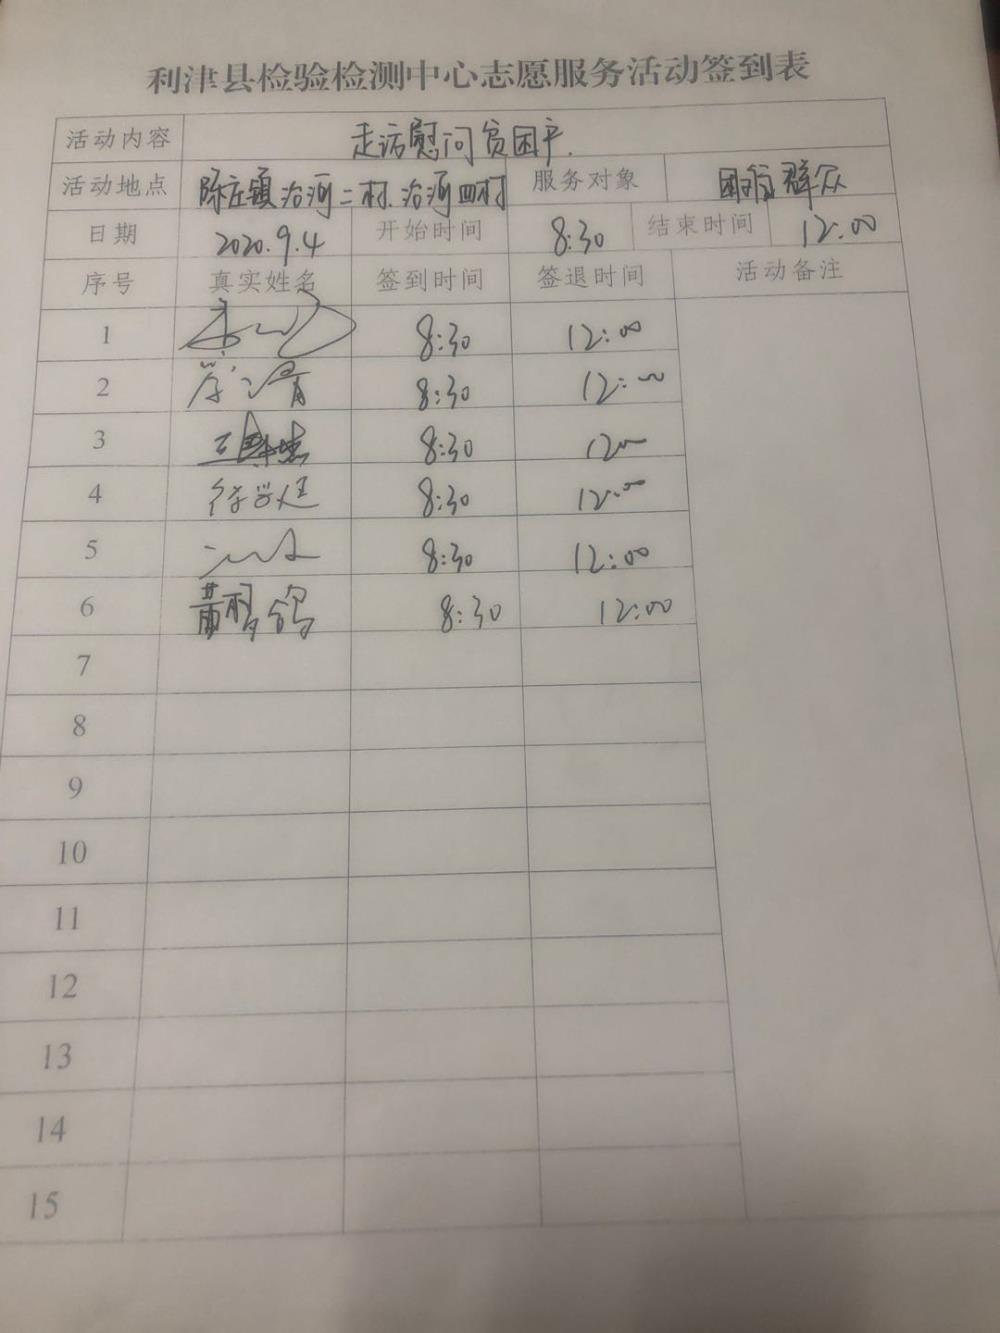 利津县检验检测中心志愿服务活动签到表
活动内容 走访慰问贫困户.
活动地点 陈庄镇治河二村、治河四村 服务对象 困难群众
日期 2020.9.4 开始时间 8:30 结束时间 12:00
序号 真实姓名 签到时间 签退时间 活动备注
1 8:30 12:00
2 8:30 12:00
3 8:30 12:00
4 8:30 12:00
5 8:30 12:00
6 8:30 12:00
7
8
9
10
11
12
13
14
15